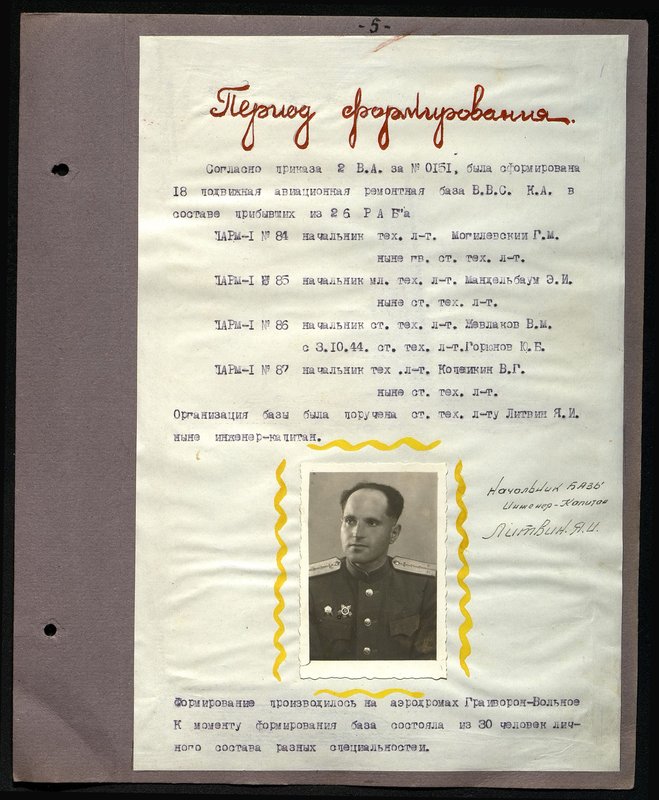 - 5 -
Период формирования.
Согласно приказа 2 В.А. за № 0151, была сформирована
18 подвижная авиационная ремонтная база В.В.С. К.А. в
составе прибывших из 26 Р А Б"а
ПАРМ-I № 84 начальник тех. л-т. Могилевский Г.М.
ныне гв. ст. тех. л-т.
ПАРМ-I № 85 начальник мл. тех. л-т. Мандельбаум Э.И.
ныне ст. тех. л-т.
ПАРМ-I № 86 начальник ст. тех. л-т. Жевлаков В.М.
с 3.10.44. ст. тех. л-т.Горюнов Ю.Б.
ПАРМ-I № 87 начальник тех .л-т. Копейкин В.Г.
ныне ст. тех. л-т.
Организация базы была поручена ст. тех. л-ту Литвин Я.И.
ныне инженер-капитан.
Начальник базы
Инженер-Капитан
Литвин.Я.И.
Формирование производилось на аэродромах Грайворон-Вольное
К моменту формирования база состояла из 30 человек лич-
ного состава разных специальностей.